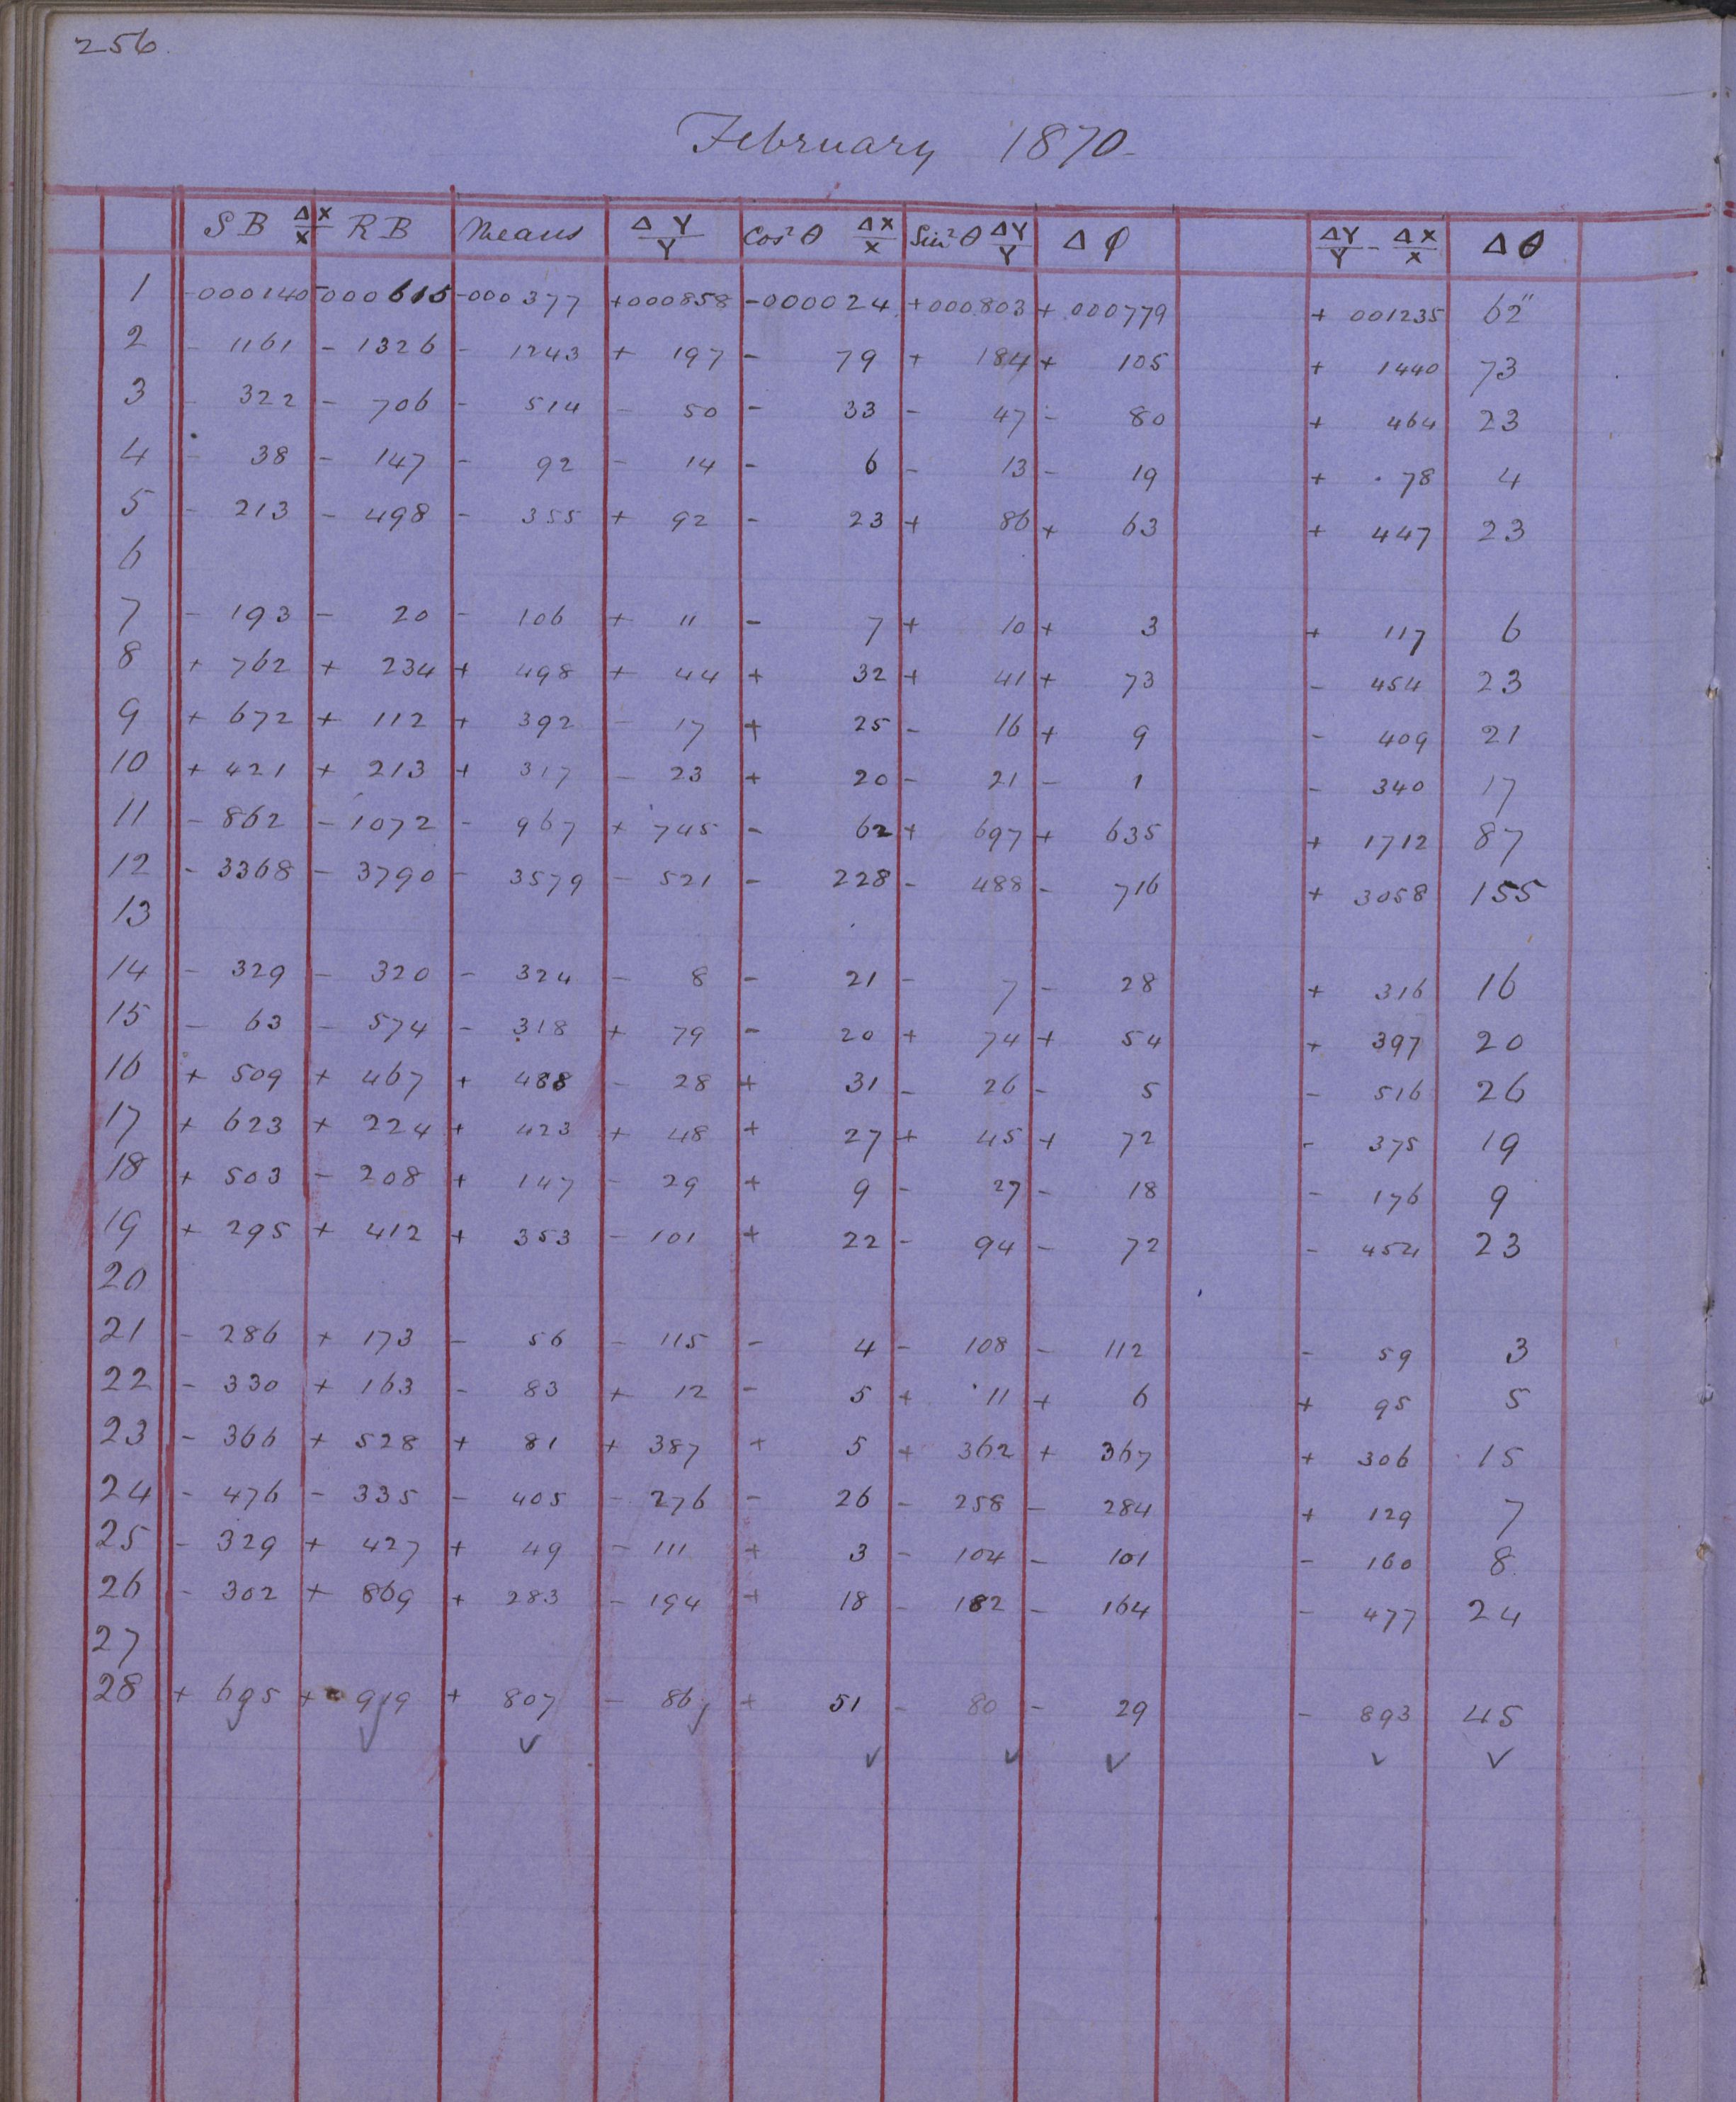 256.
February 1870
SB ΔX/X RB Means ΔY/Y Cos²θ ΔX/X Sin²θ ΔY/Y Δφ ΔY/Y - ΔX/X Δθ
1 -000140 -000615 -000377 +000858 -000024 +000803 +.000779 + 001235 62"
2 - 1161 - 1326 - 1243 + 197 - 79 + 184 + 105 + 1440 73
3 - 322 - 706 - 514 - 50 - 33 - 47 - 80 + 464 23
4 - 38 - 147 - 92 - 14 - 6 - 13 - 19 + 78 4
5 - 213 - 498 - 355 + 92 - 23 + 86 + 63 + 447 23
6
7 - 193 - 20 - 106 + 11 - 7 + 10 + 3 + 117 6
8 + 762 + 234 + 498 + 44 + 32 + 41 + 73 - 454 23
9 + 672 + 112 + 392 - 17 + 25 - 16 + 9 - 409 21
10 + 421 + 213 + 317 - 23 + 20 - 21 - 1 - 340 17
11 - 862 - 1072 - 967 + 745 - 62 + 697 + 635 + 1712 87
12 - 3368 - 3790 - 3579 - 521 - 228 - 488 - 716 + 3058 155
13
14 - 329 - 320 - 324 - 8 - 21 - 7 - 28 + 316 16
15 - 63 - 574 - 318 + 79 - 20 + 74 + 54 + 397 20
16 + 509 + 467 + 488 - 28 + 31 - 26 - 5 - 516 26
17 + 623 + 224 + 423 + 48 + 27 + 45 + 72 - 375 19
18 + 503 - 208 + 147 - 29 + 9 - 27 - 18 - 176 9
19 + 295 + 412 + 353 - 101 + 22 - 94 - 72 - 454 23
20
21 - 286 + 173 - 56 - 115 - 4 - 108 - 112 - 59 3
22 - 330 + 163 - 83 + 12 - 5 + 11 + 6 + 95 5
23 - 366 + 528 + 81 + 387 + 5 + 362 + 367 + 306 15
24 - 476 - 335 - 405 - 276 - 26 - 258 - 284 + 129 7
25 - 329 + 427 + 49 - 111 + 3 - 104 - 101 - 160 8
26 - 302 + 869 + 283 - 194 + 18 - 182 - 164 - 477 24
27
28 + 695 + 919 + 807 - 86 + 51 - 80 - 29 - 893 45
✓ ✓ ✓ ✓ ✓ ✓ ✓ ✓ ✓